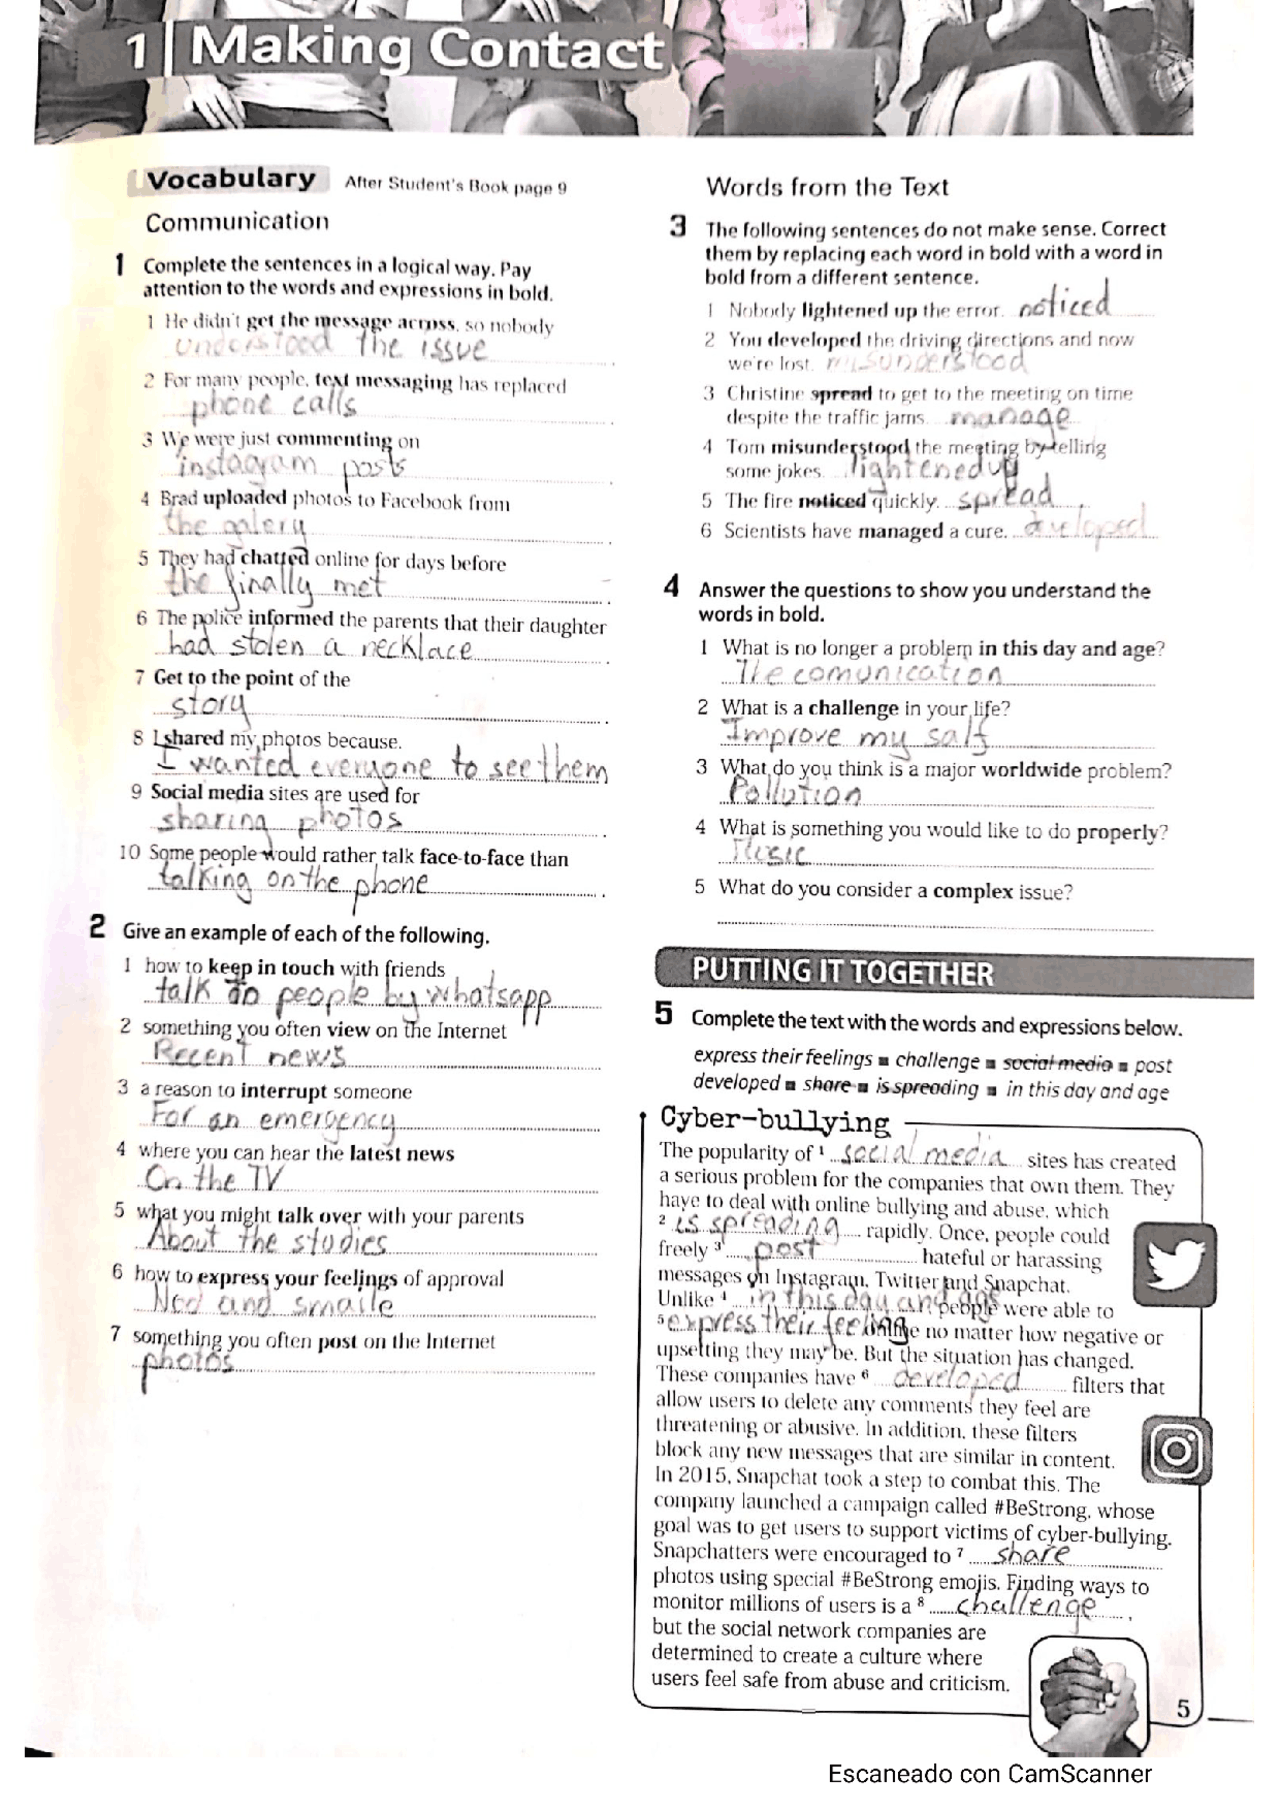 1 | Making Contact
Vocabulary After Student's Book page 9
Communication
1 Complete the sentences in a logical way. Pay
attention to the words and expressions in bold.
1 He didn't get the message across, so nobody
understood the issue
2 For many people, text messaging has replaced
phone calls
3 We were just commenting on
instagram posts
4 Brad uploaded photos to Facebook from
the galery
5 They had chatted online for days before
the finally met
6 The police informed the parents that their daughter
had stolen a necklace
7 Get to the point of the
story
8 I shared my photos because.
I wanted everyone to see them
9 Social media sites are used for
sharing photos
10 Some people would rather talk face-to-face than
talking on the phone
2 Give an example of each of the following.
1 how to keep in touch with friends
talk to people by whatsapp
2 something you often view on the Internet
Recent news
3 a reason to interrupt someone
For an emergency
4 where you can hear the latest news
On the TV
5 what you might talk over with your parents
About the studies
6 how to express your feelings of approval
Nod and smaile
7 something you often post on the Internet
photos
Words from the Text
3 The following sentences do not make sense. Correct
them by replacing each word in bold with a word in
bold from a different sentence.
1 Nobody lightened up the error. noticed
2 You developed the driving directions and now
we're lost. misunderstood
3 Christine spread to get to the meeting on time
despite the traffic jams. manage
4 Tom misunderstood the meeting by telling
some jokes. lightened up
5 The fire noticed quickly. spread
6 Scientists have managed a cure. developed
4 Answer the questions to show you understand the
words in bold.
1 What is no longer a problem in this day and age?
The comunication
2 What is a challenge in your life?
Improve my salf
3 What do you think is a major worldwide problem?
Pollution
4 What is something you would like to do properly?
Music
5 What do you consider a complex issue?
PUTTING IT TOGETHER
5 Complete the text with the words and expressions below.
express their feelings ■ challenge ■ social media ■ post
developed ■ share ■ is spreading ■ in this day and age
Cyber-bullying
The popularity of 1 social media sites has created
a serious problem for the companies that own them. They
have to deal with online bullying and abuse, which
2 is spreading rapidly. Once, people could
freely 3 post hateful or harassing
messages on Instagram, Twitter and Snapchat.
Unlike 4 in this day and age people were able to
5 express their feeling online no matter how negative or
upsetting they may be. But the situation has changed.
These companies have 6 developed filters that
allow users to delete any comments they feel are
threatening or abusive. In addition, these filters
block any new messages that are similar in content.
In 2015, Snapchat took a step to combat this. The
company launched a campaign called #BeStrong, whose
goal was to get users to support victims of cyber-bullying.
Snapchatters were encouraged to 7 share
photos using special #BeStrong emojis. Finding ways to
monitor millions of users is a 8 challenge ,
but the social network companies are
determined to create a culture where
users feel safe from abuse and criticism.
5
Escaneado con CamScanner